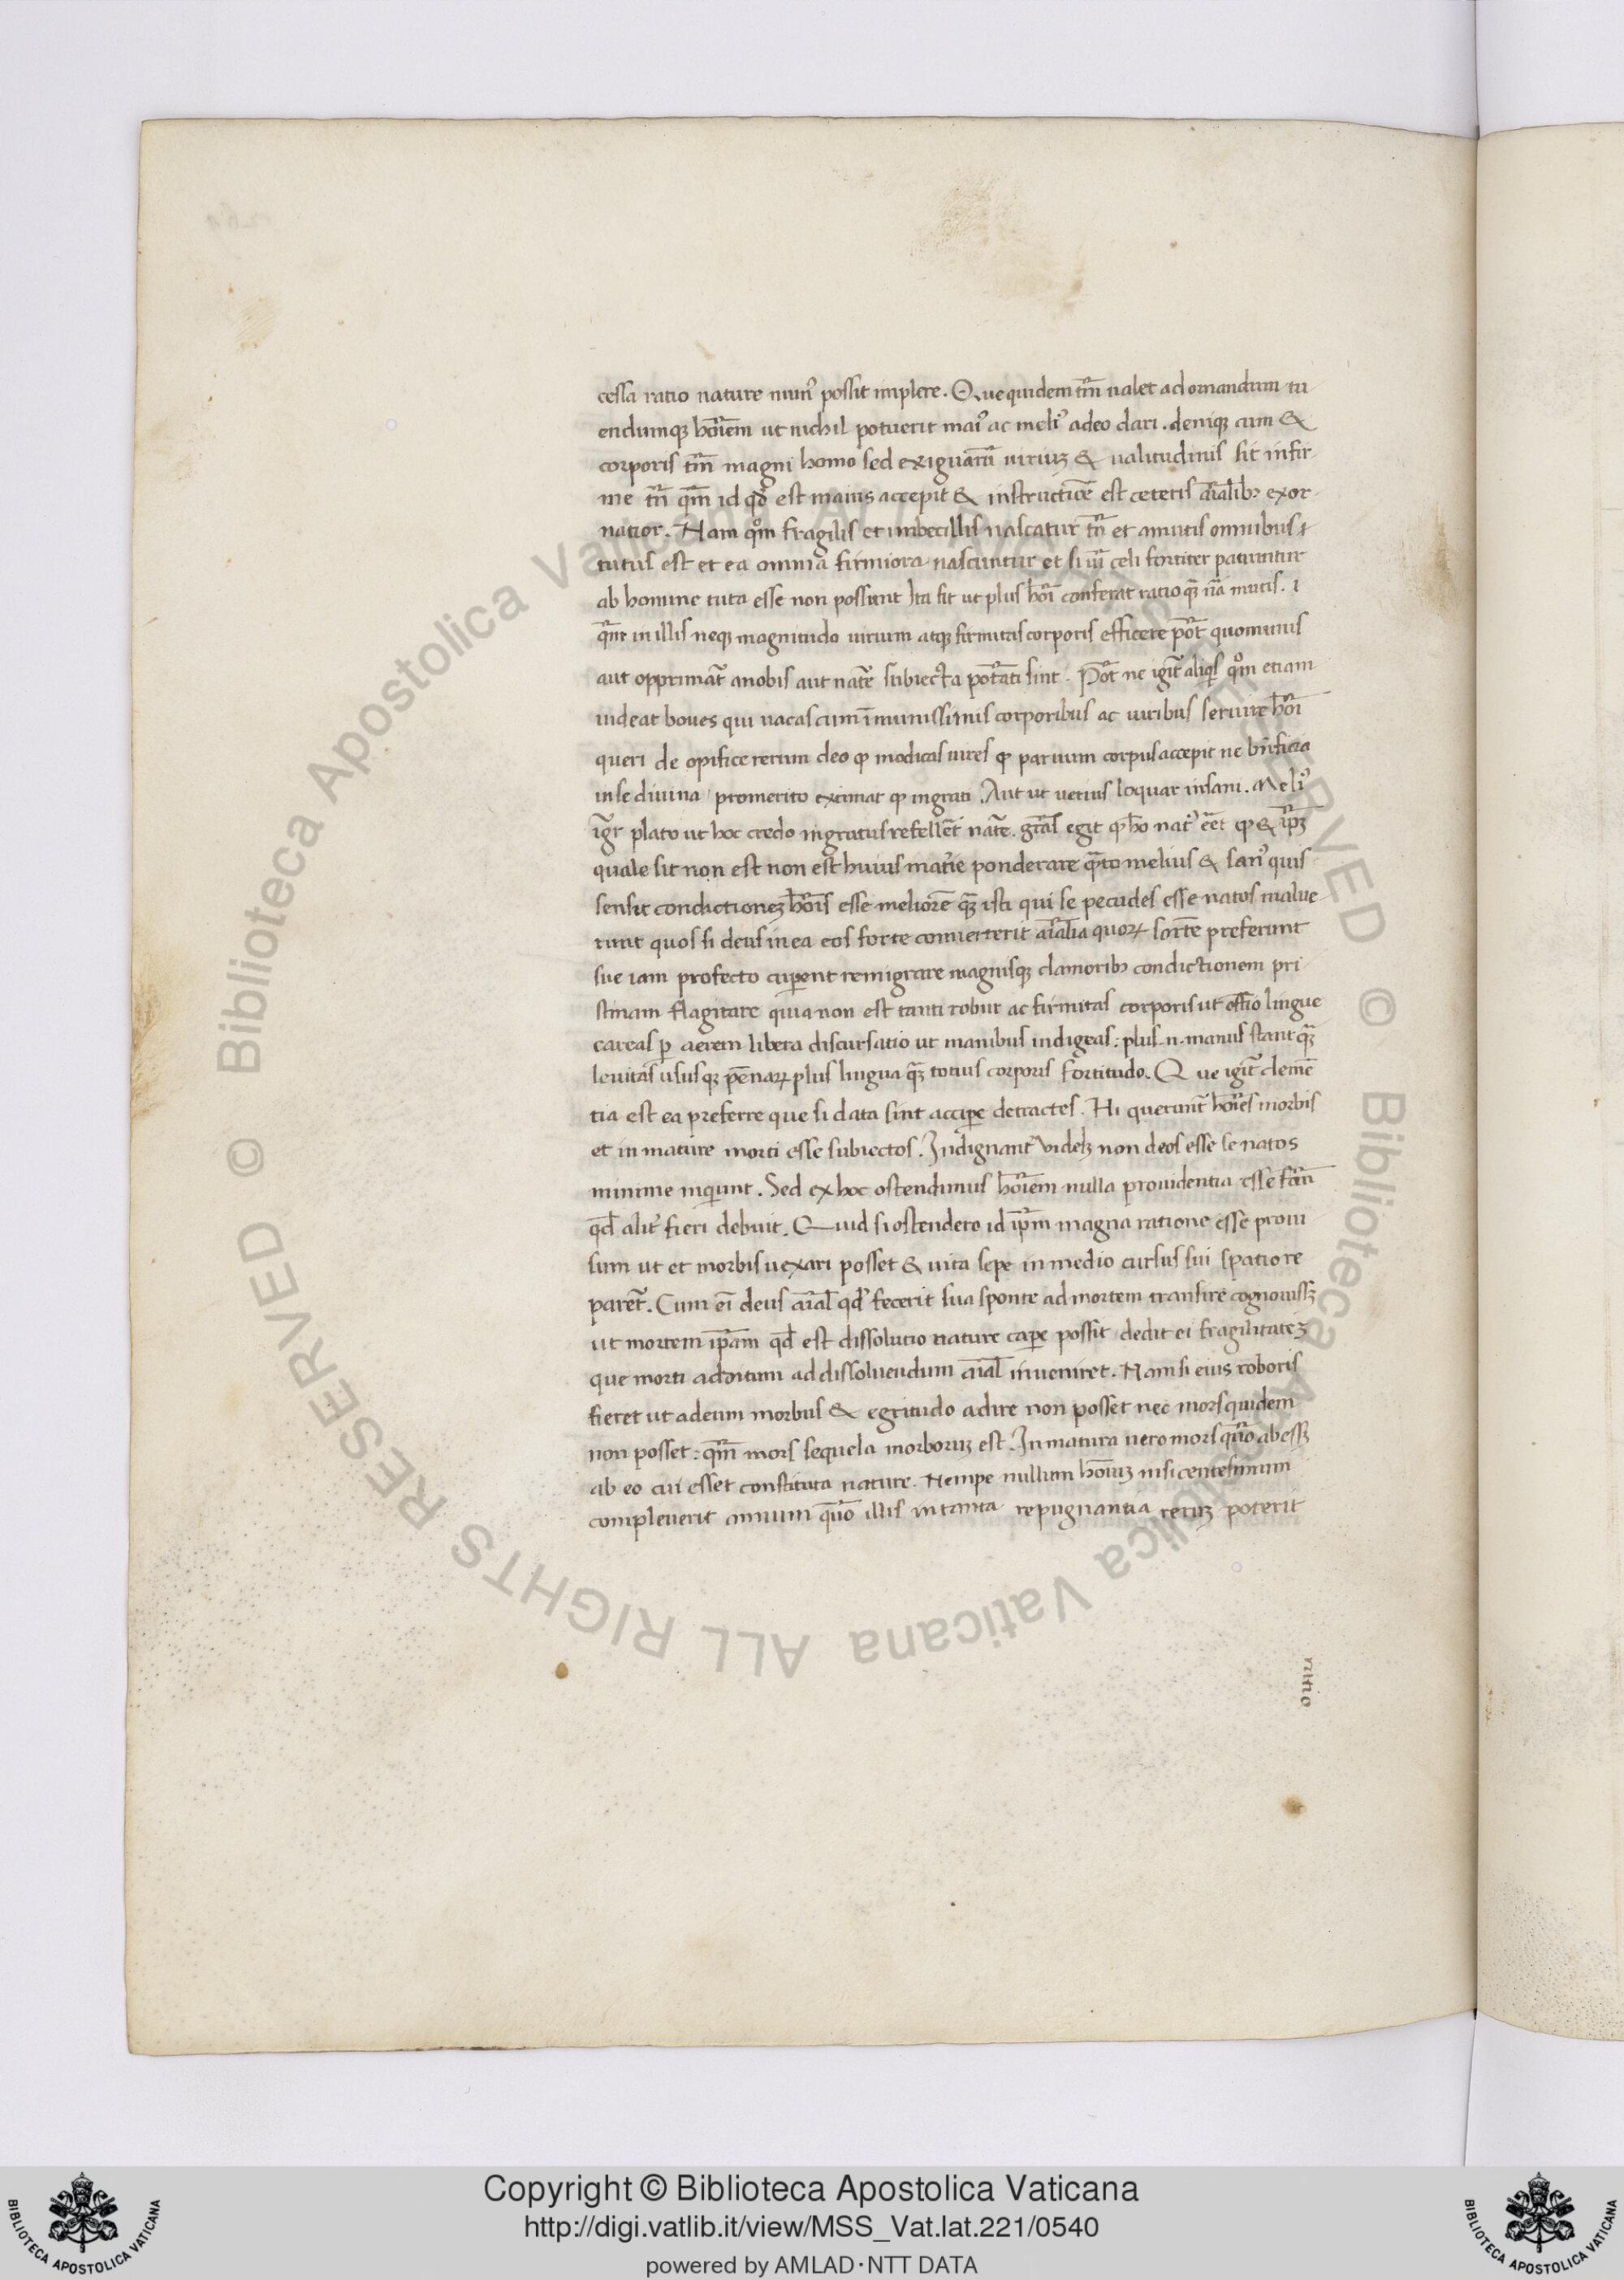 cessa ratio nature mun᾽ possit implere. Que quidem tm̄ ualet ad ornandum tu
endumqꝫ hoīem ut nichil potuerit mai᾽ ac meli᾽ a deo dari. deniqꝫ cum &
corporis tm̄ magni homo sed exiguarū uiriuꝫ & ualitudinis sit infir
me tn̄ qm̄ id qd̄ est maius accepit & instructior̄ est ceteris aīalibꝫ exor
natior. Nam qͦm fragilis et imbecillis nascatur tn̄ et a mutis omnibus
tutus est et ea omnia firmiora nascuntur et si uim celi fortiter patiuntur
ab homine tuta esse non possunt Ita fit ut plus hoī conferat ratio qꝫ nā mutis. i
qm̄ in illis neqꝫ magnitudo uirium atqꝫ firmitas corporis efficere pōt quominus
aut opprimāt a nobis aut nātē subiecta potātī sint. Pōt ne igit̄ aliqs̄ qͦm etiam
uideat boues qui uacas cum īmunissimis corporibus ac uiribus seruire hoī
queri de opifice rerum deo ꝙ modicas uires ꝙ paruum corpus accepit ne bn̄ficia
in se diuina pro merito extimat ꝙ ingrati. Aut ut uerius loquar insani. Meli᾽
iḡr plato ut hoc credo ingratus refellēt nāte. grās egit ꝙ hō nat᾽ eēt ꝙ & ip̄ꝫ
quale sit non est non est huius mat̄ie ponderare qᵃto melius & san᾽ quis
sensit condictioneꝫ hoīs esse meliorē qᵃꝫ isti qui se pecudes esse natos malue
runt quos si deus in ea eos forte conuerterit aīalia quoꝝ sortē preferunt
sue iam profecto cuꝑent remigrare magnisqꝫ clamoribꝫ condictionem pri
stinam flagitare quia non est tanti robur ac firmitas corporis ut offō lingue
careas ꝑ aerem libera discursatio ut manibus indigeas: plus .n. manus stant qᵃꝫ
leuitas usus qꝫ pēnaꝝ plus lingua qᵃꝫ totius corporis fortitudo. Que igit̄ demē
tia est ea preferre que si data sint acciꝑe detractes. Hi querunt̄ hoīes morbis
et in mature morti esse subiectos. Indignant̄ uidelꝫ non deos esse se natos
minime inquiunt. Sed ex hoc ostendimus hoīem nulla prouidentia esse fām
qd̄ alit̄ fieri debuit. Quid si ostendero id ip̄m magna ratione esse proui
sum ut et morbis uexari posset & uita sepe in medio cursus sui spatio re
paret̄. Cum eī deus aīal qd̄ fecerit sua sponte ad mortem transire cognouissꝫ
ut mortem ip̄am qd̄ est dissolutio nature caꝑe possit dedit ei fragilitateꝫ
que morti aditum ad dissoluendum aīal inueniret. Nam si eius roboris
fieret ut ad eum morbus & egritudo adire non posset nec mors quidem
non posset: qm̄ mors sequela morboruꝫ est. In matura uero mors quō abessꝫ
ab eo cui esset constituta nature. Nempe nullum hoīuꝫ nisi centesimum
compleuerit annum quō illis in tanta repugnantia reruꝫ poterit
ratio
Copyright © Biblioteca Apostolica Vaticana
http://digi.vatlib.it/view/MSS_Vat.lat.221/0540
powered by AMLAD·NTT DATA
BIBLIOTECA APOSTOLICA VATICANA
BIBLIOTECA APOSTOLICA VATICANA
© Biblioteca Apostolica Vaticana ALL RIGHTS RESERVED © Biblioteca Apostolica Vaticana ALL RIGHTS RESERVED